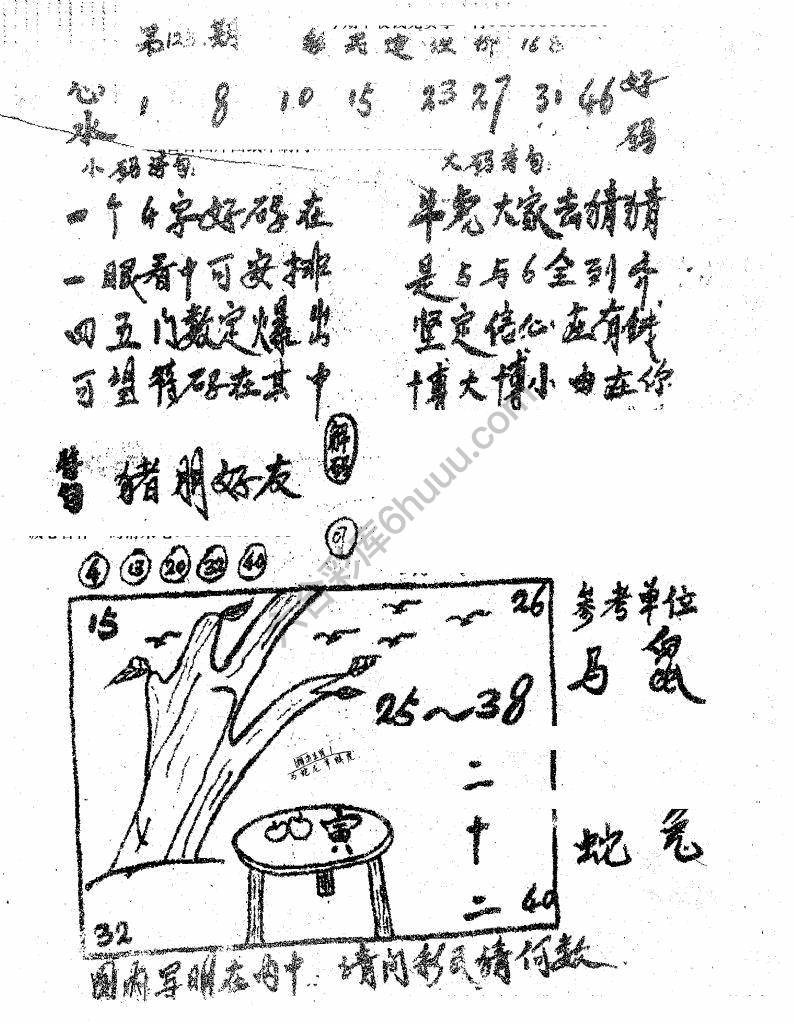 第123期
心水 1 8 10 15 23 27 31 46 好码
小码诗句:
大码诗句:
一个4字好码在
一眼看中可安排
四五门数定爆出
可望特码在其中
斗虎大家去猜猜
是5与6全到齐
坚定信心应有钱
博大博小由在你
解码
猪朋好友
07
4 13 20 32 40
15
26
参考单位
马 鼠
25~38
寅
二十二
蛇 兔
32
40
图两写明在内中 请问彩民猜何数
六合彩库6huuu.com